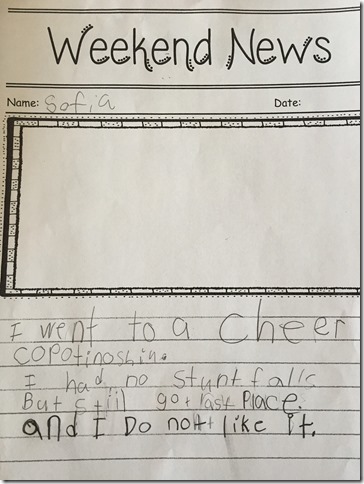 Weekend News
Name: Sofia Date:
I went to a Cheer
COPOtinoshin.
I had no stunt falls
But still got last Place.
and I Do nott like it.